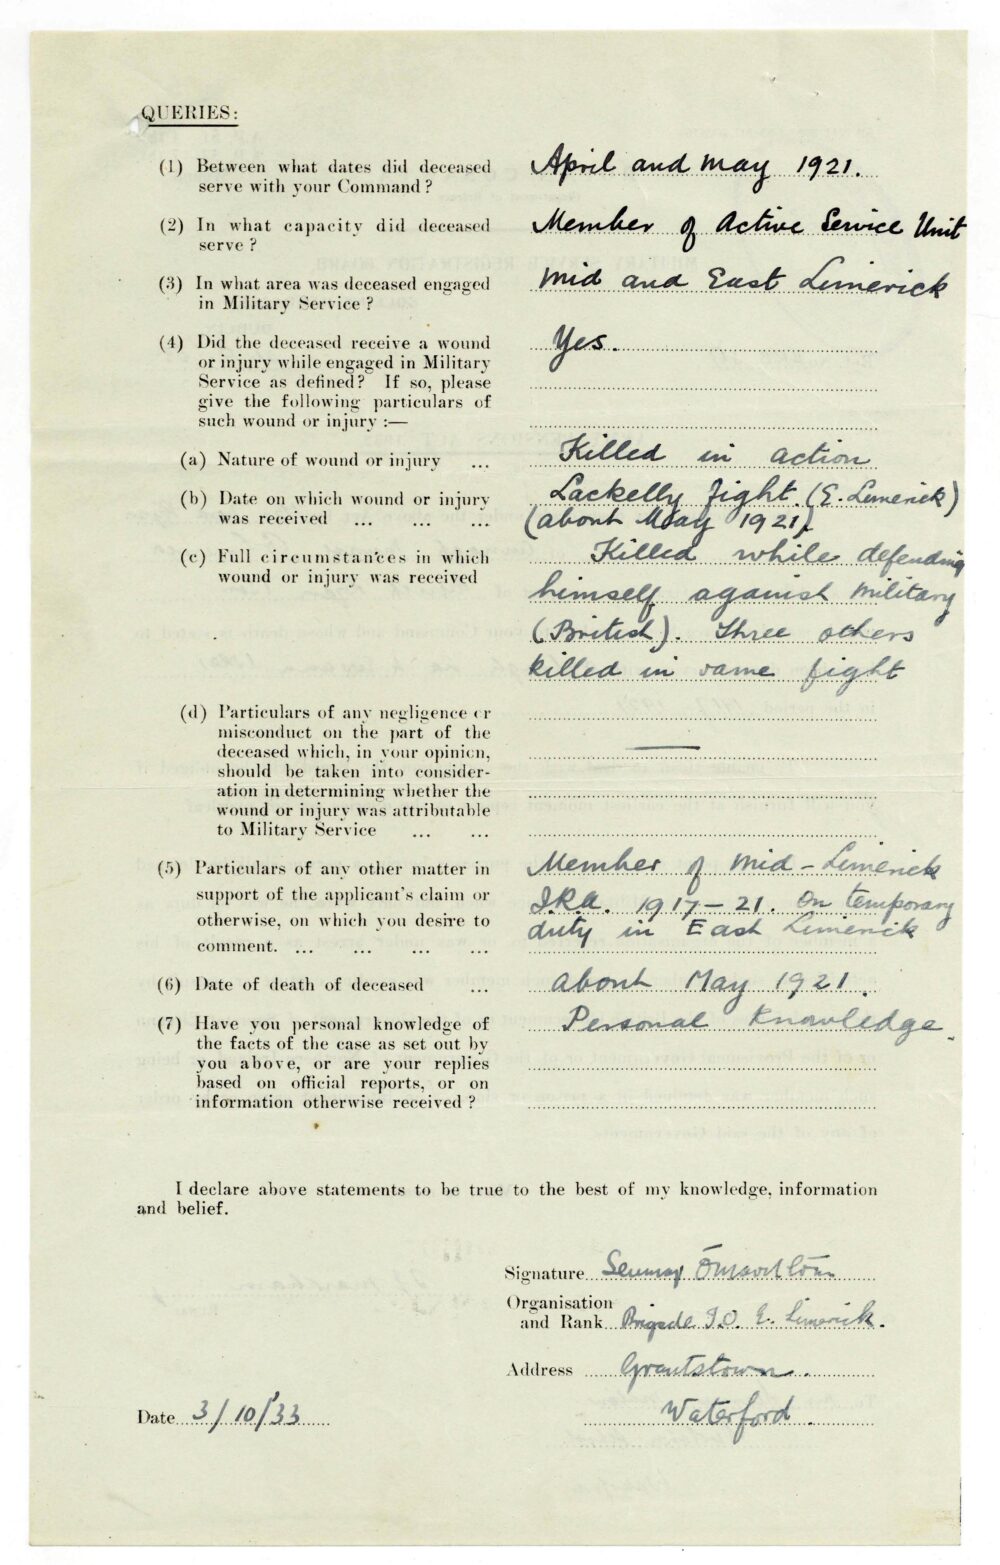 QUERIES:
(1) Between what dates did deceased April and May 1921.
serve with your Command?
(2) In what capacity did deceased Member of Active Service Unit
serve?
(3) In what area was deceased engaged Mid and East Limerick
in Military Service?
(4) Did the deceased receive a wound Yes.
or injury while engaged in Military
Service as defined? If so, please
give the following particulars of
such wound or injury :—
(a) Nature of wound or injury ... Killed in action
(b) Date on which wound or injury Lackelly fight. (E. Limerick)
was received ... ... ... (about May 1921).
(c) Full circumstances in which Killed while defending
wound or injury was received himself against Military
(British). Three others
killed in same fight
(d) Particulars of any negligence or
misconduct on the part of the
deceased which, in your opinion, —
should be taken into consider-
ation in determining whether the
wound or injury was attributable
to Military Service ... ...
(5) Particulars of any other matter in Member of Mid-Limerick
support of the applicant's claim or I.R.A. 1917-21. On temporary
otherwise, on which you desire to duty in East Limerick
comment. ... ... ... ...
(6) Date of death of deceased ... about May 1921.
(7) Have you personal knowledge of Personal Knowledge.
the facts of the case as set out by
you above, or are your replies
based on official reports, or on
information otherwise received?
I declare above statements to be true to the best of my knowledge, information
and belief.
Signature
Organisation
and Rank Brigade I.O. E. Limerick.
Address Grantstown.
Date 3/10/33 Waterford.